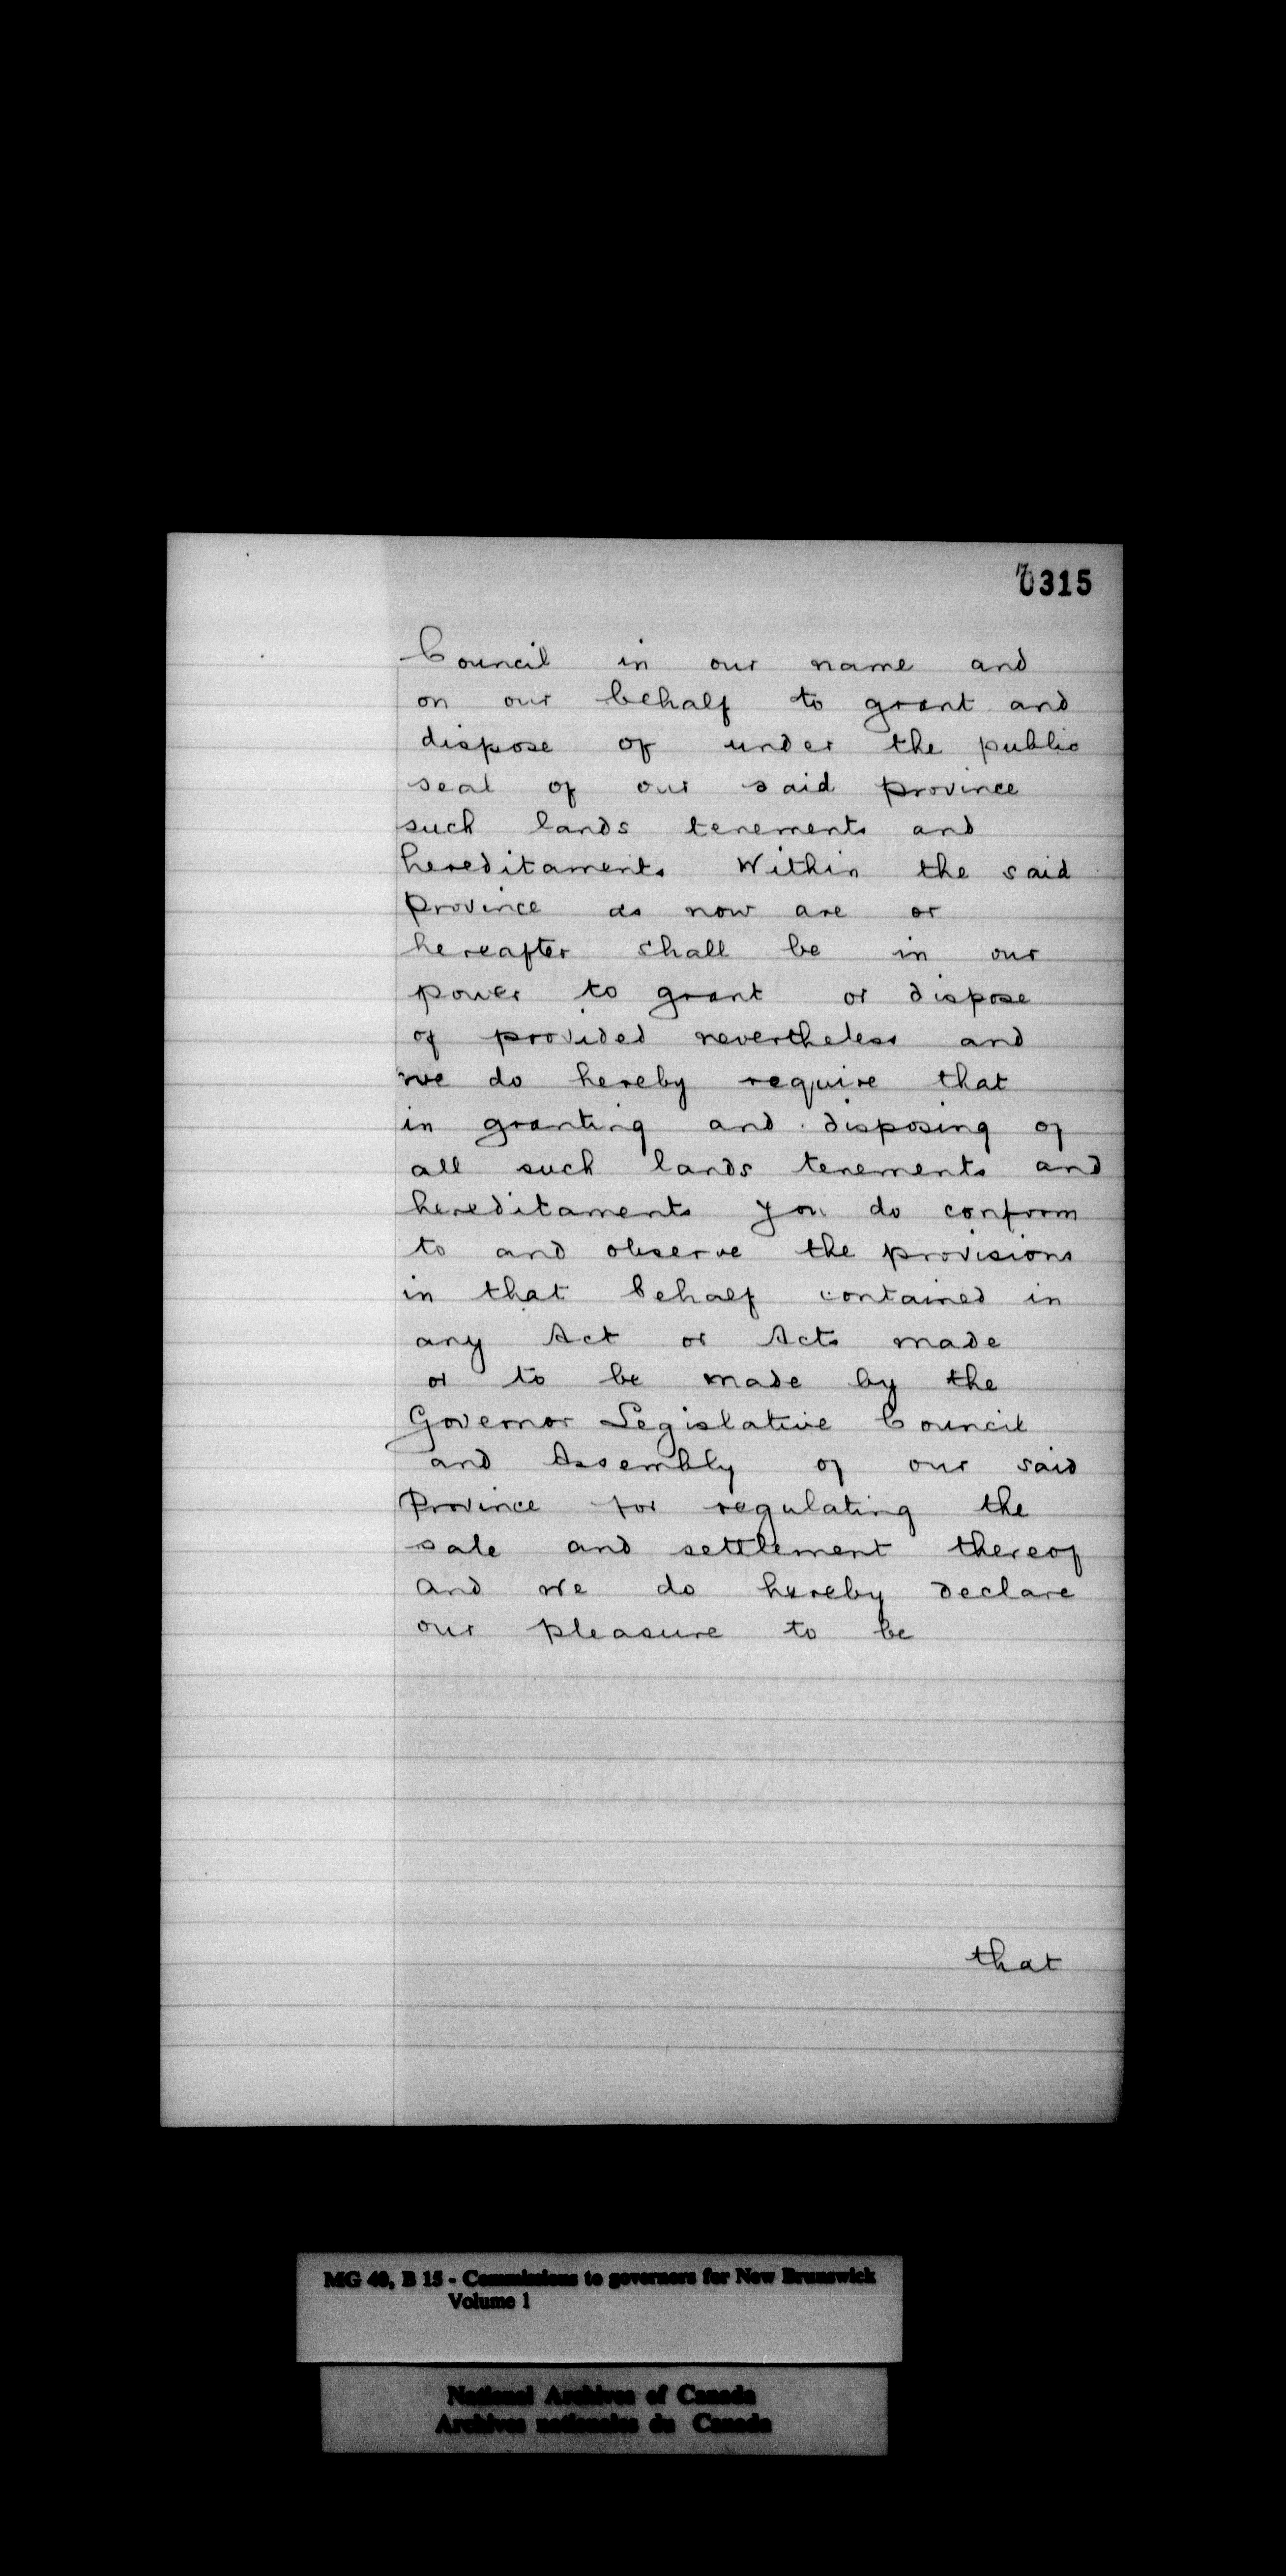 0315
Council in our name and
on our behalf to grant and
dispose of under the public
seal of our said province
such lands tenements and
hereditaments Within the said
Province as now are or
hereafter shall be in our
power to grant or dispose
of provided nevertheless and
we do hereby require that
in granting and disposing of
all such lands tenements and
hereditaments you do conform
to and observe the provisions
in that behalf contained in
any Act or Acts made
or to be made by the
Governor Legislative Council
and Assembly of our said
Province for regulating the
sale and settlement thereof
and we do hereby declare
our pleasure to be
that
MG 40, B 15 - Commissions to governors for New Brunswick
Volume 1
National Archives of Canada
Archives nationales du Canada